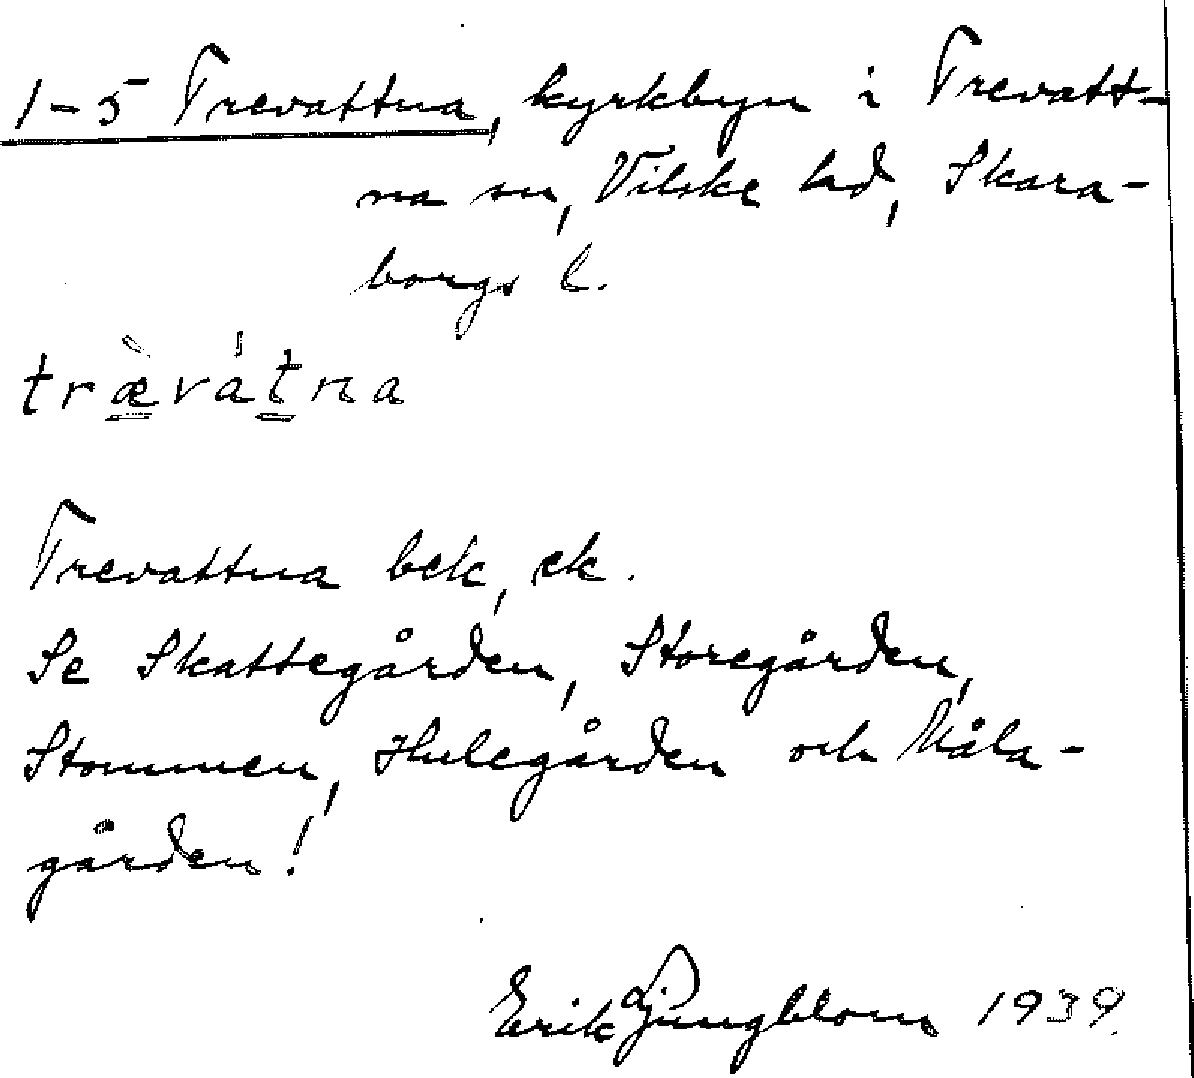 1-5 Trevattna, kyrkbyn i Trevatt-
na sn, Vilske hd, Skara-
borgs l.
træ̀vátna
Trevattna bek, ek.
Se Skattegården, Storegården,
Stommen, Hulegården och Måla-
gården!
Erik Ljungblom 1939.